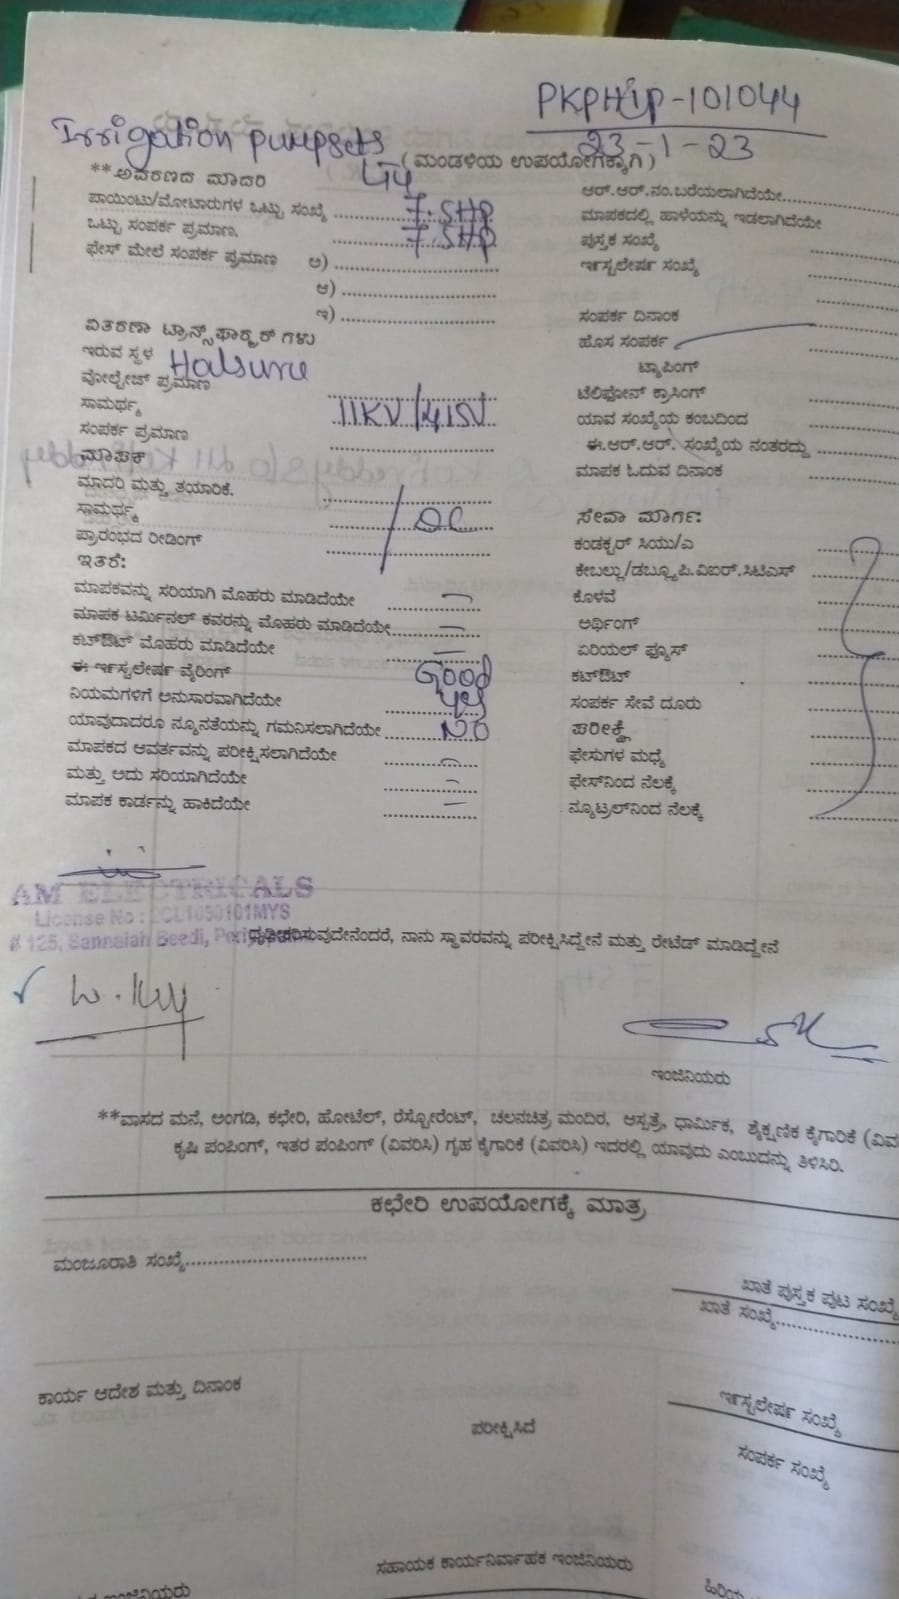 PKPHIP-101044
23-1-23
Irrigation pumpsets
(ಮಂಡಳಿಯ ಉಪಯೋಗಕ್ಕಾಗಿ)
**ಆವರಣದ ಮಾದರಿ
ಪಾಯಿಂಟು/ಮೋಟಾರುಗಳ ಒಟ್ಟು ಸಂಖ್ಯೆ 7.5HP
ಒಟ್ಟು ಸಂಪರ್ಕ ಪ್ರಮಾಣ. 7.5HP
ಫೇಸ್ ಮೇಲೆ ಸಂಪರ್ಕ ಪ್ರಮಾಣ ಅ)
ಆ)
ಇ)
ವಿತರಣಾ ಟ್ರಾನ್ಸ್‌ಫಾರ್ಮರ್ ಗಳು
ಇರುವ ಸ್ಥಳ Halsuru
ವೋಲ್ಟೇಜ್ ಪ್ರಮಾಣ
ಸಾಮರ್ಥ್ಯ 11KV/415V
ಸಂಪರ್ಕ ಪ್ರಮಾಣ
ಮಾಪಕ
ಮಾದರಿ ಮತ್ತು ತಯಾರಿಕೆ.
ಸಾಮರ್ಥ್ಯ DC
ಪ್ರಾರಂಭದ ರೀಡಿಂಗ್
ಇತರೆ:
ಮಾಪಕವನ್ನು ಸರಿಯಾಗಿ ಮೊಹರು ಮಾಡಿದೆಯೇ
ಮಾಪಕ ಟರ್ಮಿನಲ್ ಕವರನ್ನು ಮೊಹರು ಮಾಡಿದೆಯೇ
ಕಟ್‌ಔಟ್ ಮೊಹರು ಮಾಡಿದೆಯೇ
ಈ ಇನ್‌ಸ್ಟಲೇಷನ್ ವೈರಿಂಗ್ Good
ನಿಯಮಗಳಿಗೆ ಅನುಸಾರವಾಗಿದೆಯೇ yes
ಯಾವುದಾದರೂ ನ್ಯೂನತೆಯನ್ನು ಗಮನಿಸಲಾಗಿದೆಯೇ NO
ಮಾಪಕದ ಆವರ್ತವನ್ನು ಪರೀಕ್ಷಿಸಲಾಗಿದೆಯೇ
ಮತ್ತು ಅದು ಸರಿಯಾಗಿದೆಯೇ
ಮಾಪಕ ಕಾರ್ಡನ್ನು ಹಾಕಿದೆಯೇ
ಆರ್.ಆರ್.ನಂ.ಬರೆಯಲಾಗಿದೆಯೇ
ಮಾಪಕದಲ್ಲಿ ಹಾಳೆಯನ್ನು ಇಡಲಾಗಿದೆಯೇ
ಪುಸ್ತಕ ಸಂಖ್ಯೆ
ಇನ್‌ಸ್ಟಲೇಷನ್ ಸಂಖ್ಯೆ
ಸಂಪರ್ಕ ದಿನಾಂಕ
ಹೊಸ ಸಂಪರ್ಕ
ಟ್ಯಾಪಿಂಗ್
ಟೆಲಿಫೋನ್ ಕ್ರಾಸಿಂಗ್
ಯಾವ ಸಂಖ್ಯೆಯ ಕಂಬದಿಂದ
ಈ.ಆರ್.ಆರ್. ಸಂಖ್ಯೆಯ ನಂತರದ್ದು
ಮಾಪಕ ಓದುವ ದಿನಾಂಕ
ಸೇವಾ ಮಾರ್ಗ:
ಕಂಡಕ್ಟರ್ ಸಿಯು/ಎ
ಕೇಬಲ್ಲು/ಡಬ್ಲ್ಯೂ.ಪಿ.ವಿಐರ್.ಸಿಟಿಎಸ್
ಕೊಳವೆ
ಅರ್ಥಿಂಗ್
ಏರಿಯಲ್ ಫ್ಯೂಸ್
ಕಟ್‌ಔಟ್
ಸಂಪರ್ಕ ಸೇವೆ ದೂರು
ಪರೀಕ್ಷೆ
ಫೇಸುಗಳ ಮಧ್ಯೆ
ಫೇಸ್‌ನಿಂದ ನೆಲಕ್ಕೆ
ನ್ಯೂಟ್ರಲ್‌ನಿಂದ ನೆಲಕ್ಕೆ
AM ELECTRICALS
License No :
# 125, Sannaiah Beedi,
ದೃಢೀಕರಿಸುವುದೇನೆಂದರೆ, ನಾನು ಸ್ಥಾವರವನ್ನು ಪರೀಕ್ಷಿಸಿದ್ದೇನೆ ಮತ್ತು ರೇಟೆಡ್ ಮಾಡಿದ್ದೇನೆ
ಇಂಜಿನಿಯರು
**ವಾಸದ ಮನೆ, ಅಂಗಡಿ, ಕಛೇರಿ, ಹೋಟೆಲ್, ರೆಸ್ಟೋರೆಂಟ್, ಚಲನಚಿತ್ರ ಮಂದಿರ, ಆಸ್ಪತ್ರೆ, ಧಾರ್ಮಿಕ, ಶೈಕ್ಷಣಿಕ ಕೈಗಾರಿಕೆ (ವಿವ
ಕೃಷಿ ಪಂಪಿಂಗ್, ಇತರ ಪಂಪಿಂಗ್ (ವಿವರಿಸಿ) ಗೃಹ ಕೈಗಾರಿಕೆ (ವಿವರಿಸಿ) ಇದರಲ್ಲಿ ಯಾವುದು ಎಂಬುದನ್ನು ತಿಳಿಸಿರಿ.
ಕಛೇರಿ ಉಪಯೋಗಕ್ಕೆ ಮಾತ್ರ
ಮಂಜೂರಾತಿ ಸಂಖ್ಯೆ
ಖಾತೆ ಪುಸ್ತಕ ಪುಟ ಸಂಖ್ಯೆ
ಖಾತೆ ಸಂಖ್ಯೆ
ಕಾರ್ಯ ಆದೇಶ ಮತ್ತು ದಿನಾಂಕ
ಇನ್‌ಸ್ಟಲೇಷನ್ ಸಂಖ್ಯೆ
ಪರೀಕ್ಷಿಸಿದೆ
ಸಂಪರ್ಕ ಸಂಖ್ಯೆ
ಸಹಾಯಕ ಕಾರ್ಯನಿರ್ವಾಹಕ ಇಂಜಿನಿಯರು
ಇಂಜಿನಿಯರು